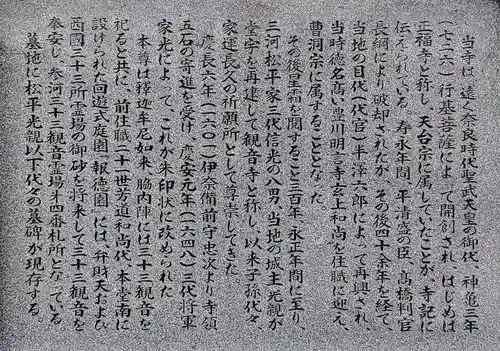 当寺は、遠く奈良時代聖武天皇の御代、神亀三年
（七二六）行基菩薩によって開創され、はじめは
正福寺と称し、天台宗に属していたことが、寺記に
伝えられている。寿永年間、平清盛の臣、高橋判官
長綱により破却されたが、その後四十余年を経て、
当地の目代（代官）の半澤六郎によって再興され、
当時徳名高い豊川明言寺玄上和尚を住職に迎え、
曹洞宗に属することとなった。
その後星霜を閲すること三百年、永正年間に至り、
三河松平家三代信光の八男、当地の城主光親が
堂宇を再建して観音寺と称し、以来子孫代々、
家運長久の祈願所として尊崇してきた。
慶長六年（一六〇一）伊奈備前守忠次より寺領
五石の寄進を受け、慶安元年（一六四八）三代将軍
家光によって、これが朱印状に改められた。
本尊は釈迦牟尼如来、脇内陣には三十三観音を
祀ると共に、前住職二十一世芳道和尚代、本堂南に
設けられた回遊式庭園『報徳園』には、弁財天および
西國三十三所霊場の御砂を将来して三十三観音を
奉安し、参河三十三観音霊場第四番札所となっている。
墓地に松平光親以下代々の墓碑が現存する。